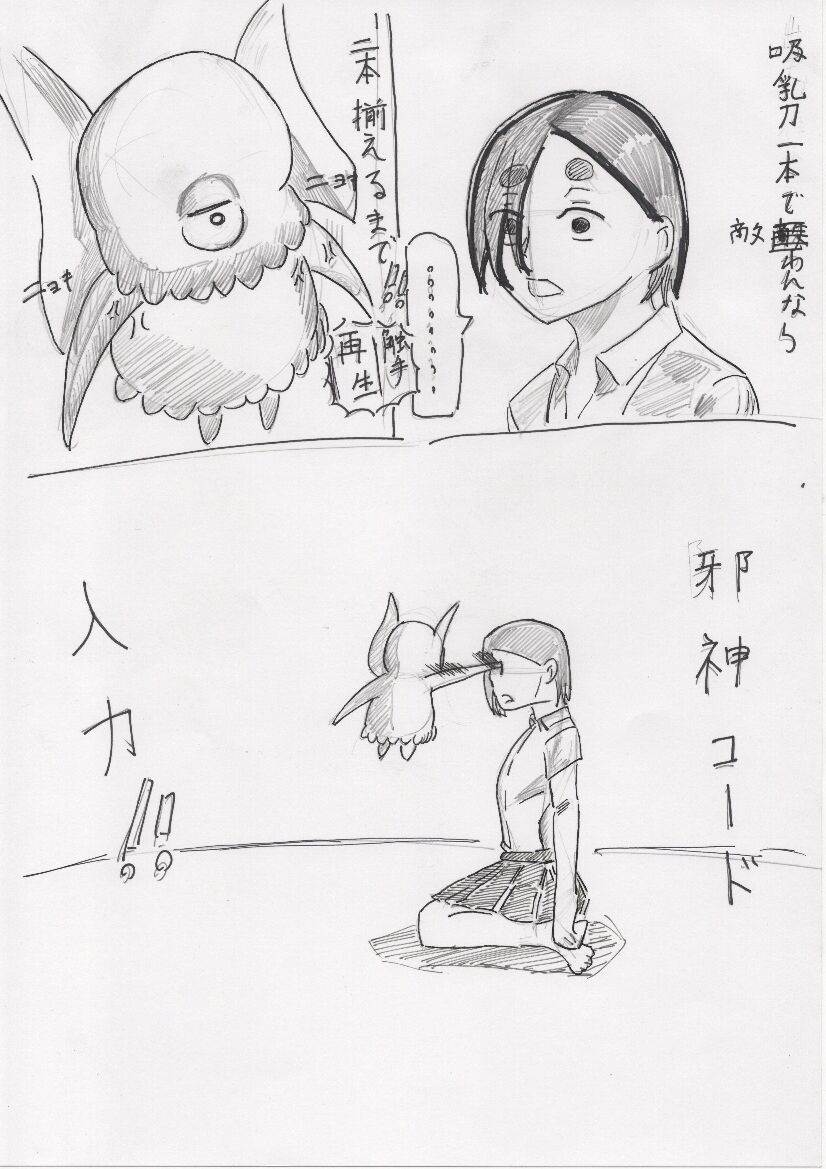 吸乳刀一本で
敵わんなら
二本揃えるまで!!
…………
触手
再生
ニョキ
ニョキ
邪神コード
入力!!